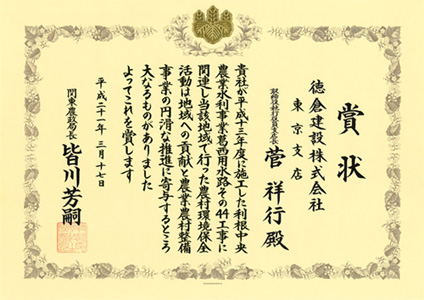 賞状
徳倉建設株式会社
東京支店
取締役執行役員支店長
菅 祥行 殿
貴社が平成十三年度に施工した利根中央
農業水利事業葛西用水路その44工事に
関連し当該地域で行った農村環境保全
活動は地域への貢献と農業農村整備
事業の円滑な推進に寄与するところ
大なるものがありました
よってこれを賞します
平成二十一年三月十七日
関東農政局長 皆川芳嗣